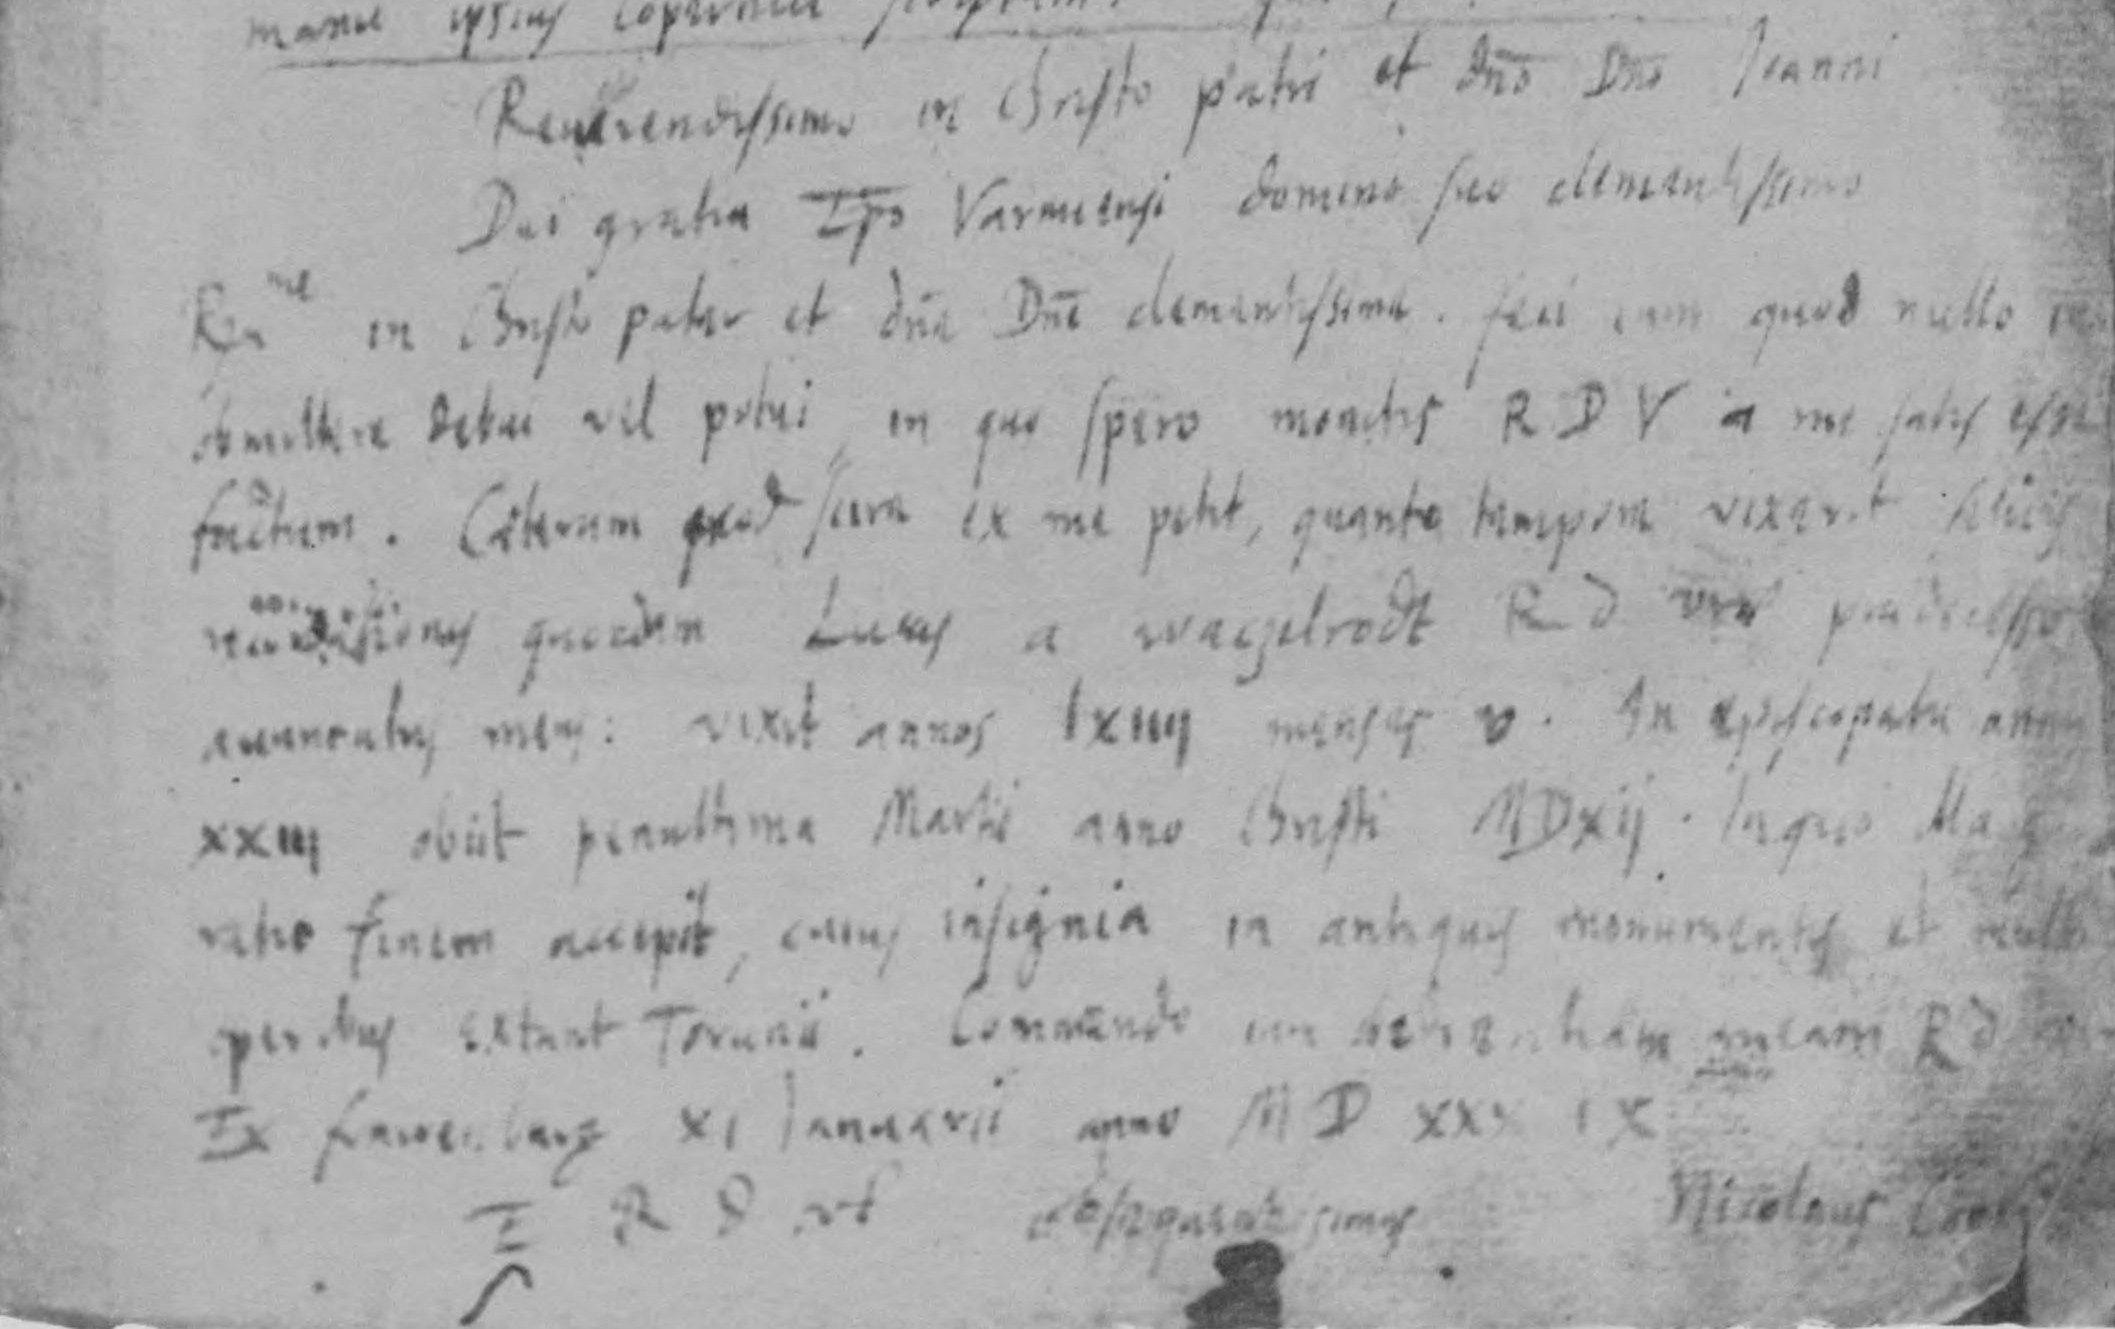 manu ipsius Copernici
Reuerendissimo in Christo patri et dno Dno Joanni
Dei gratia Epo Varmiensi domino suo clementissimo
Rᵐᵉ in Christo pater et dne Dne clementissime. feci iam quod nullo
obmittere debui vel potui, in quo spero monitis R D V a me satis esse
factum. Cæterum quod scire ex me petit, quanto tempore vixerit
quondam Lucas a waczelrodt R d
auunculus meus: vixit annos lxiiij menses v. In episcopatu annos
xxiij obiit penultima Martii anno Christi MDxij. In quo
ratio finem accepit, cuius insignia in antiquis monumentis et multis
operibus extant Torunii. Commendo meam R d
Ex frawenburg xi Januarii anno M D xxx i x
E R d Nicolaus